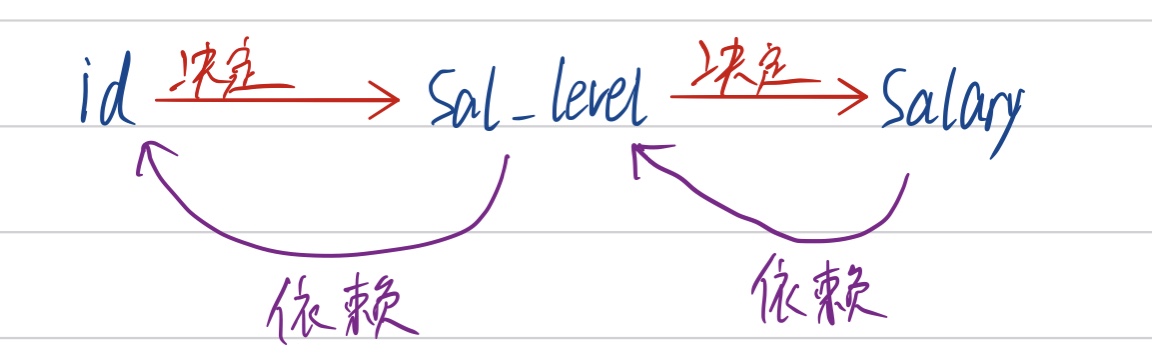 id 决定 Sal_level 决定 Salary
依赖 依赖